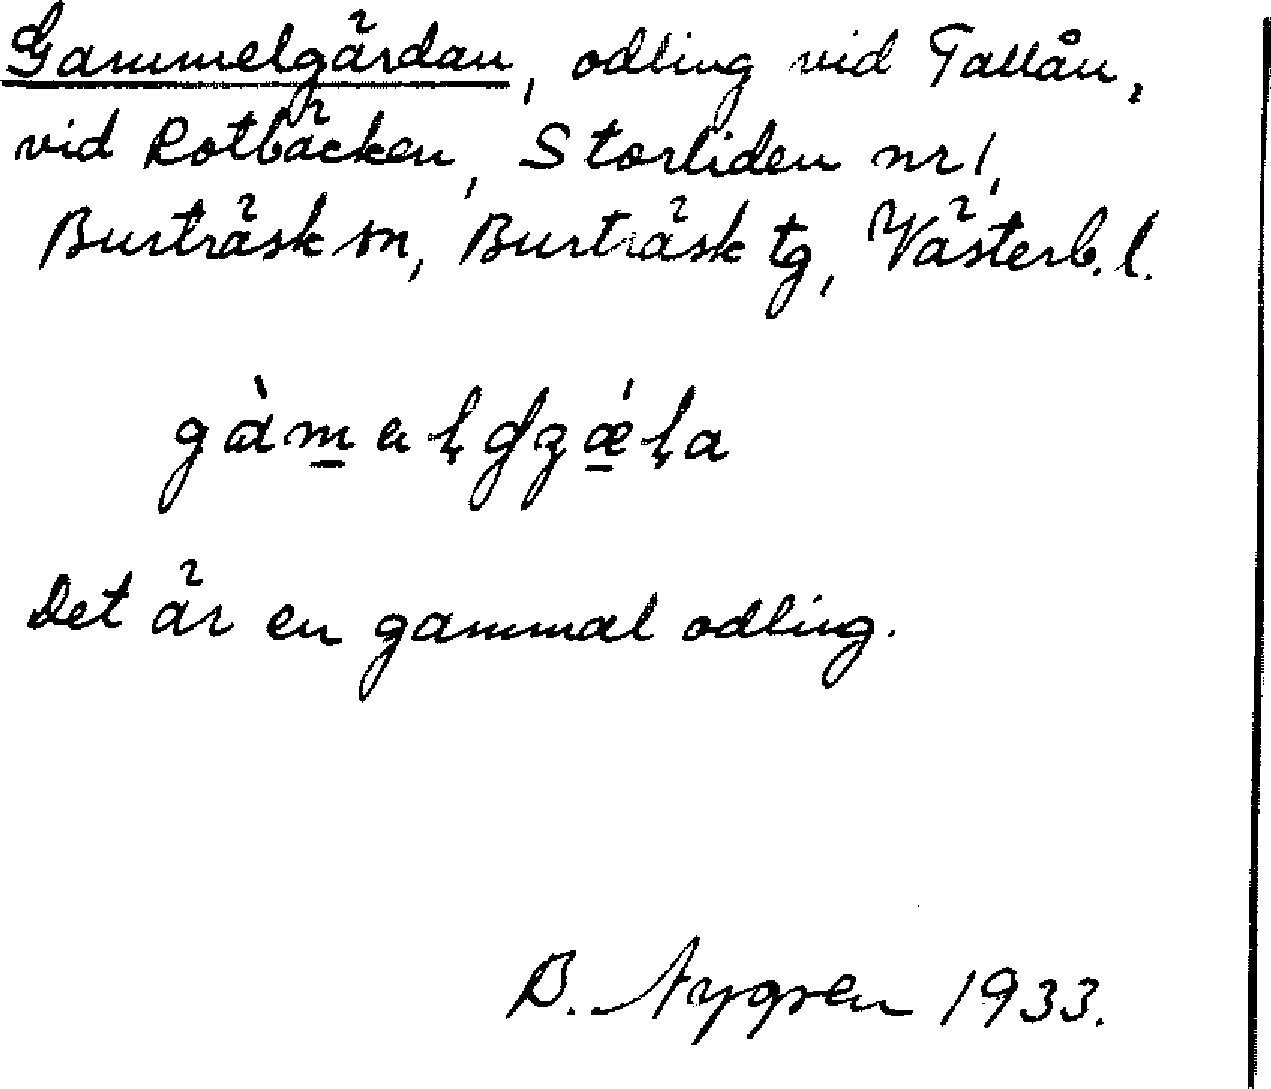 Gammelgärdan, odling vid Tallån,
vid Rotbäcken, Storliden nr 1,
Burträsk sn, Burträsk tg, Västerb. l.
Det är en gammal odling.
B. Nygren 1933.